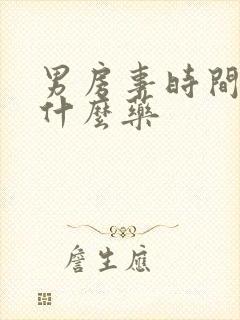 男房事時間
什麼藥
詹生應